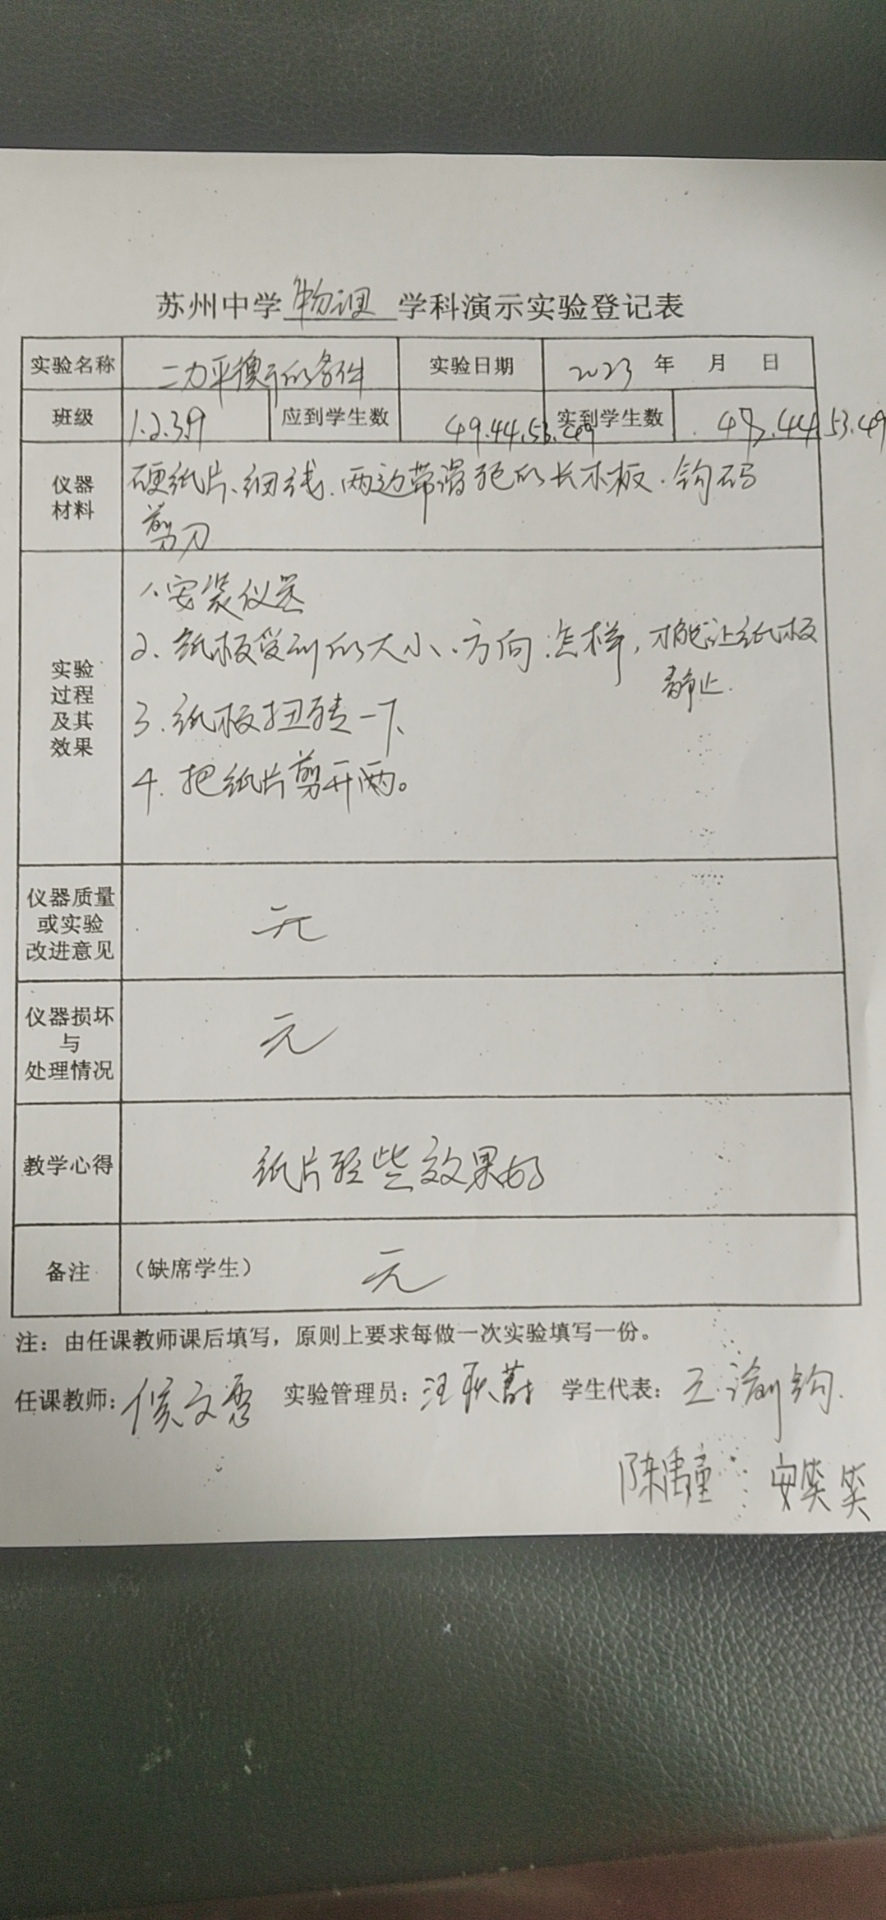 苏州中学物理学科演示实验登记表
实验名称 二力平衡的条件 实验日期 2023 年 月 日
班级 1.2.3.9 应到学生数 49.44.53.49 实到学生数 .44.53.49
仪器材料 硬纸片、细线、两边带滑轮的长木板.钩码
剪刀
实验过程及其效果
1.安装仪器
2.纸板受到的大小、方向怎样,才能让纸板
静止.
3.纸板扭转一下
4.把纸片剪开两。
仪器质量或实验改进意见 无
仪器损坏与处理情况 无
教学心得 纸片轻些效果好
备注 (缺席学生) 无
注:由任课教师课后填写,原则上要求每做一次实验填写一份。
任课教师:侯文 实验管理员:汪 学生代表:王
陈禹童 安笑笑